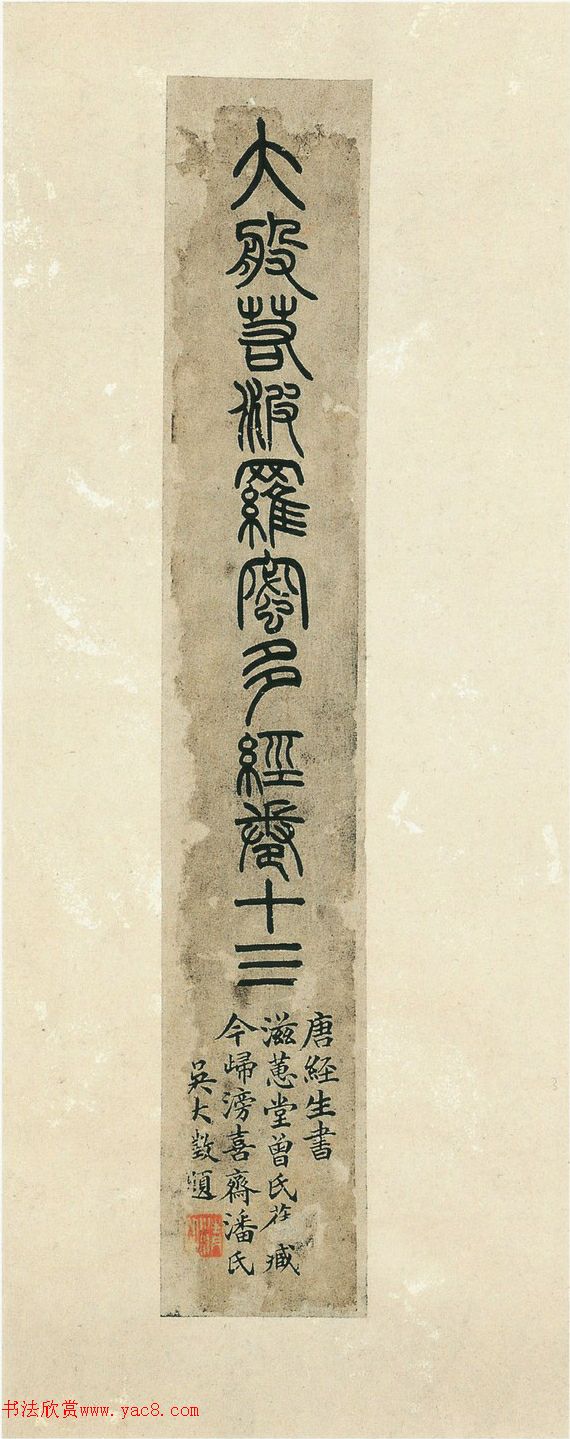 大般若波羅密多經卷十三
唐經生書
滋蕙堂曾氏在臧
今歸滂喜齋潘氏
吳大澂題
书法欣赏www.yac8.com